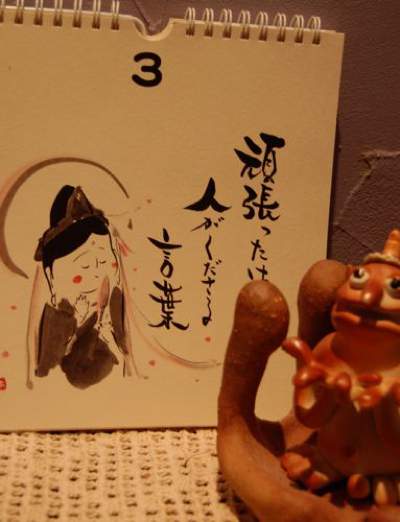 3
頑張ったけ
人がくださるの
言葉